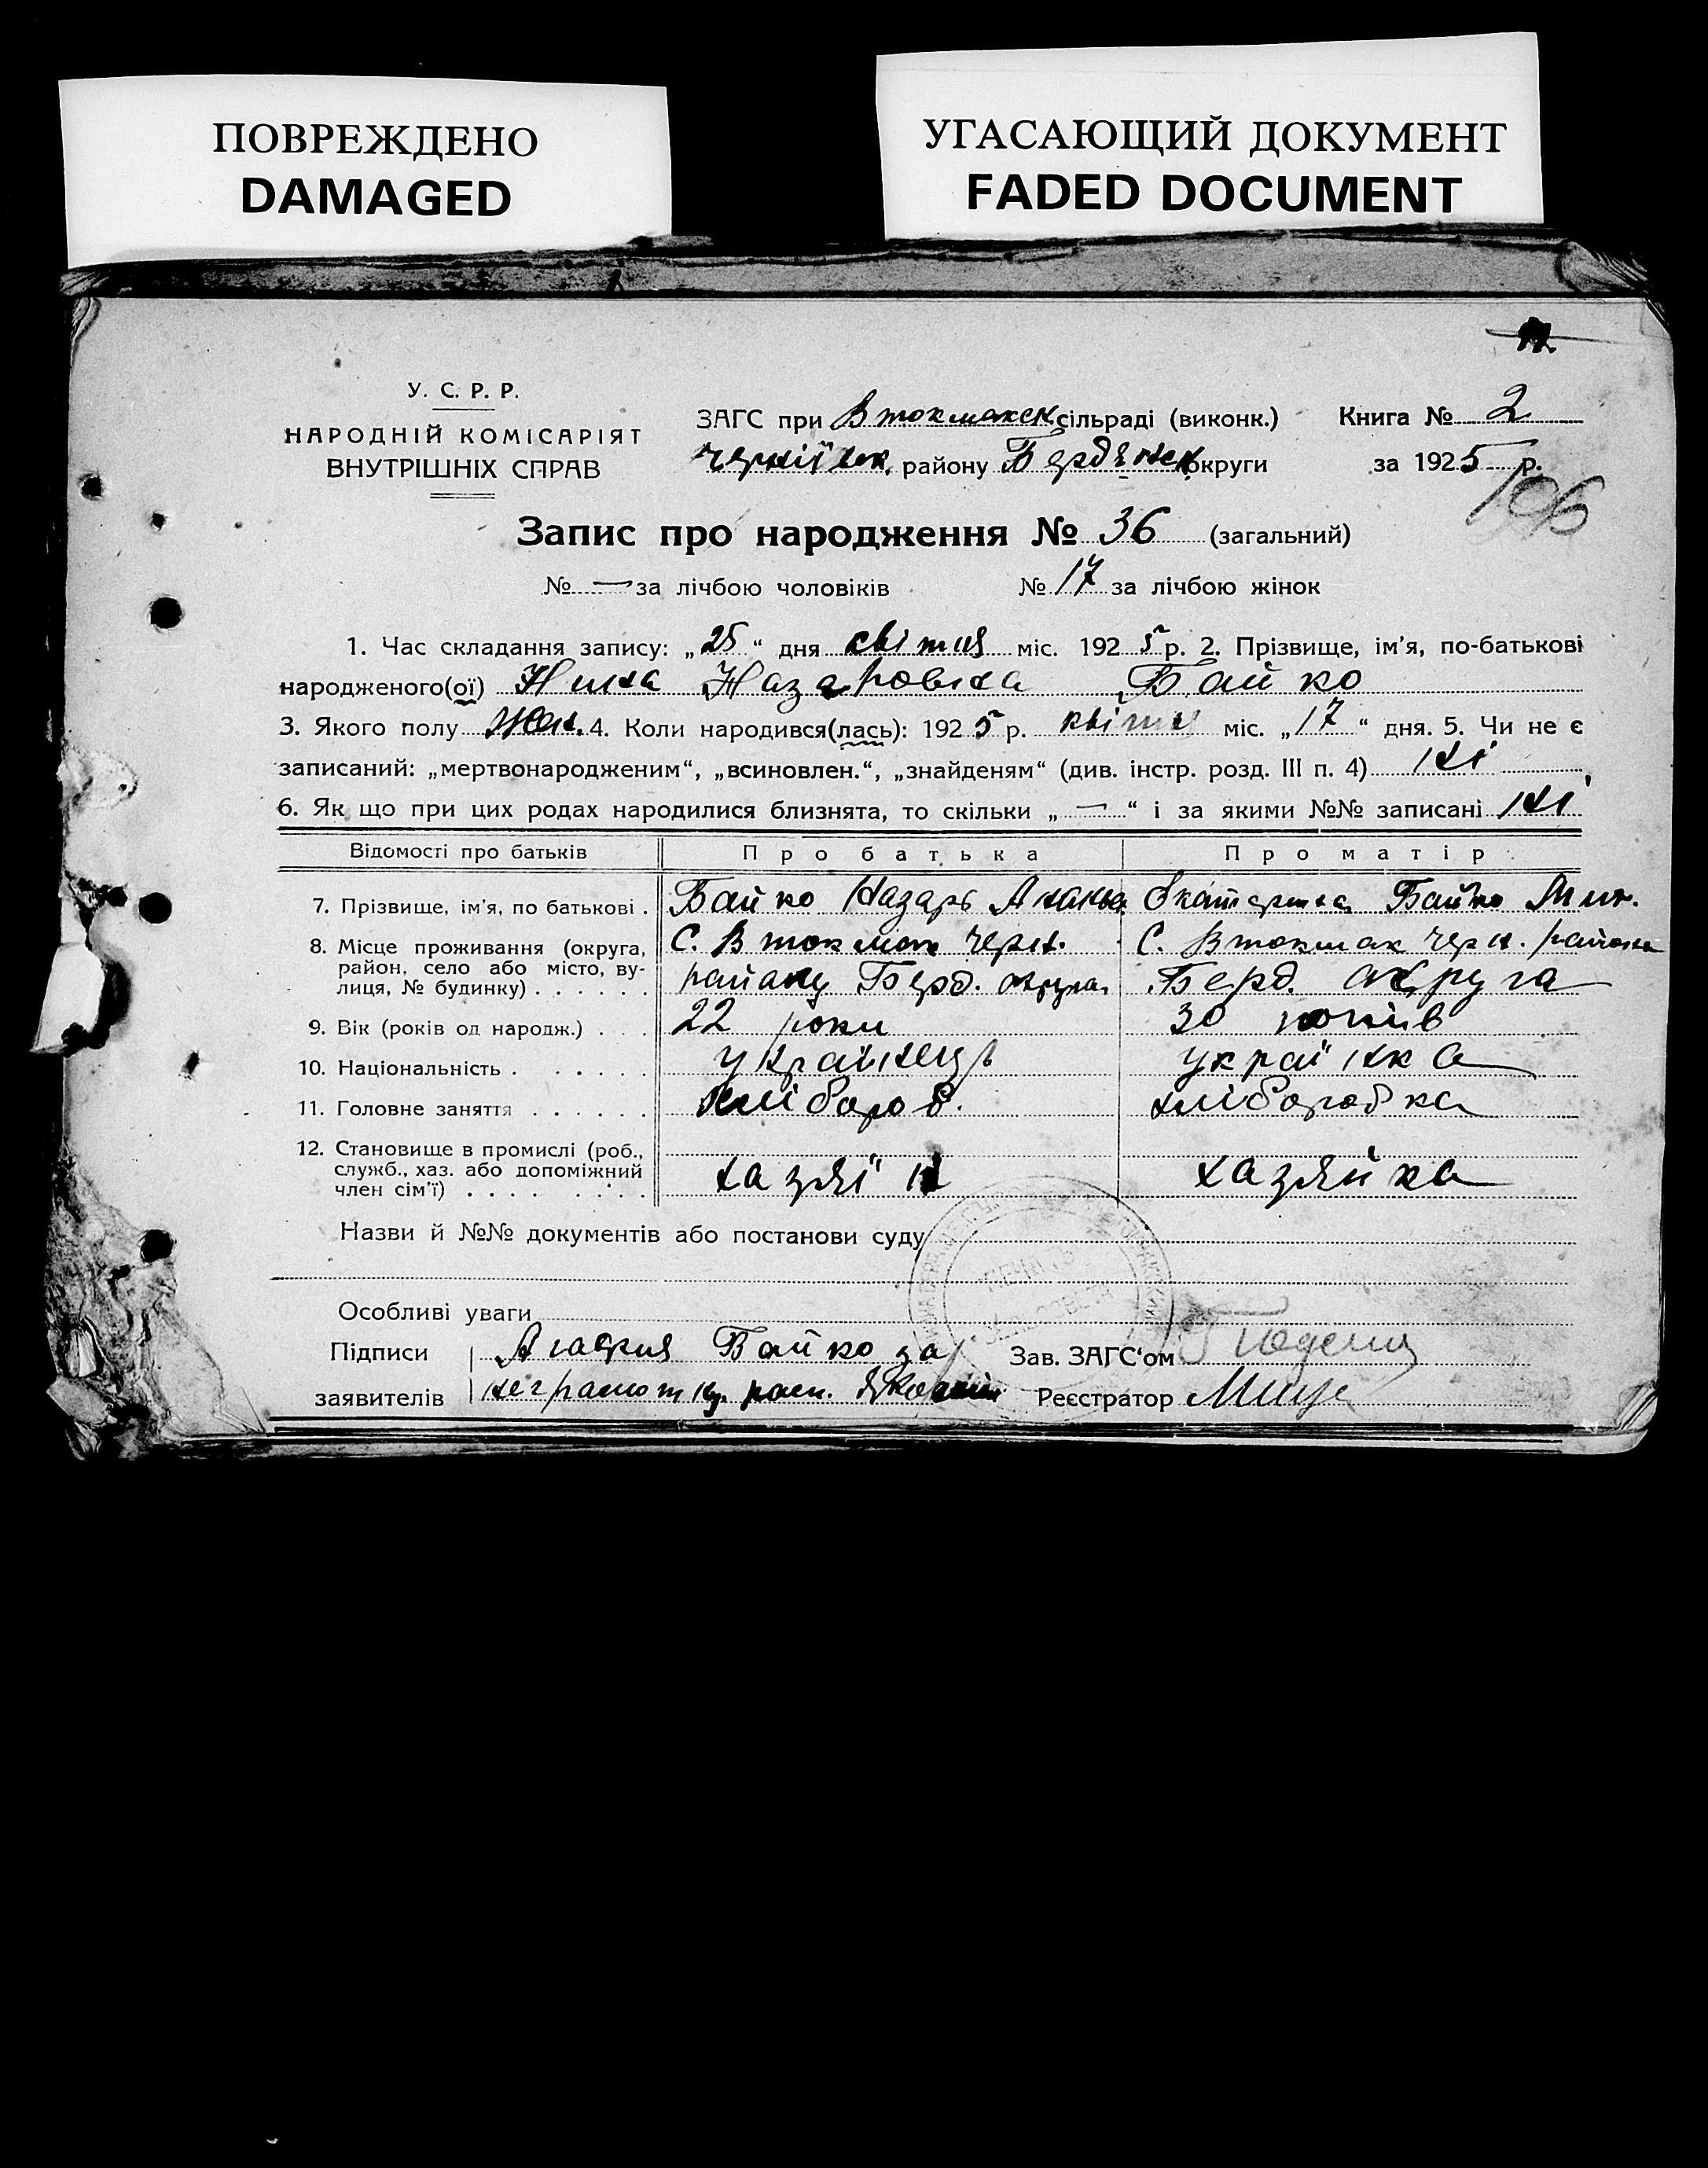 ПОВРЕЖДЕНО
DAMAGED
УГАСАЮЩИЙ ДОКУМЕНТ
FADED DOCUMENT
У. С. Р. Р.
НАРОДНІЙ КОМІСАРІЯТ
ВНУТРІШНІХ СПРАВ
ЗАГС при Втокмакск сільраді (виконк.) Книга № 2
району округи за 1925 р.
106
Запис про народження № 36 (загальний)
№ — за лічбою чоловіків № 17 за лічбою жінок
1. Час складання запису: „25“ дня квітня міс. 1925 р. 2. Прізвище, ім'я, по-батькові
народженого(ої) Нина Назаровна Байко
3. Якого полу Жен. 4. Коли народився(лась): 1925 р. квітня міс. „17“ дня. 5. Чи не є
записаний: „мертвонародженим“, „всиновлен.“, „знайденям“ (див. інстр. розд. III п. 4) ні
6. Як що при цих родах народилися близнята, то скільки „—“ і за якими №№ записані ні
Відомості про батьків Про батька Про матір
7. Прізвище, ім'я, по батькові . Байко Назарь Екатерина Байко
8. Місце проживання (округа, район, село або місто, вулиця, № будинку) . . . . . .
С. Втокмак Черн. С. Втокмак Черн. района
району Берд. округа Берд. округа
9. Вік (років од народж.) . . . 22 роки 30 років
10. Національність . . . . . . українець українка
11. Головне заняття . . . . . . хлібороб. хліборобка
12. Становище в промислі (роб., служб., хаз. або допоміжний член сім'ї) . . . . . . . .
хазяїн хазяйка
Назви й №№ документів або постанови суду
Особливі уваги
Підписи Агафия Байко за Зав. ЗАГС'ом
заявителів неграмотну росп. Реєстратор